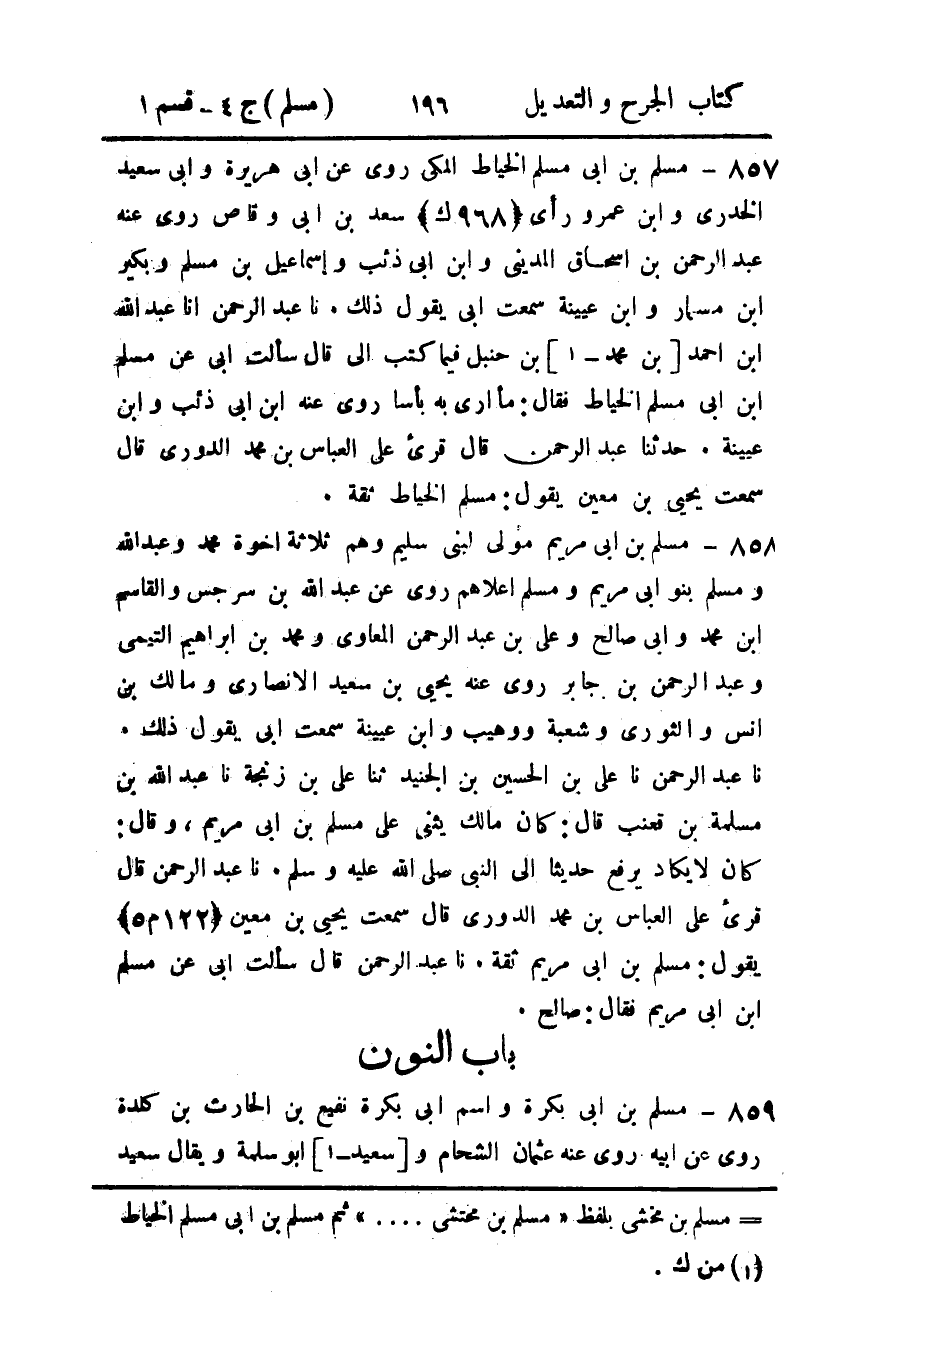 كتاب الجرح والتعديل ١٩٦ (مسلم) ج ٤ - قسم ١
٨٥٧ - مسلم بن ابى مسلم الخياط المكى روى عن ابى هريرة و ابى سعيد
الخدرى و ابن عمرو رأى (٩٦٨ك) سعد بن ابى و قاص روى عنه
عبد الرحمن بن اسحاق المدينى و ابن ابى ذئب و إسماعيل بن مسلم و بكير
ابن مسمار و ابن عيينة سمعت ابى يقول ذلك . نا عبد الرحمن انا عبد الله
ابن احمد [ بن محمد - ١ ] بن حنبل فيما كتب الى قال سألت ابى عن مسلم
ابن ابى مسلم الخياط فقال: ما أرى به بأسا روى عنه ابن ابى ذئب و ابن
عيينة . حدثنا عبد الرحمن قال قرئ على العباس بن محمد الدورى قال
سمعت يحيى بن معين يقول: مسلم الخياط ثقة .
٨٥٨ - مسلم بن ابى مريم مولى لبنى سليم وهم ثلاثة اخوة محمد وعبد الله
و مسلم بنو ابى مريم و مسلم اعلاهم روى عن عبد الله بن سرجس و القاسم
ابن محمد و ابى صالح و على بن عبد الرحمن المعاوى و محمد بن ابراهيم التيمى
و عبد الرحمن بن جابر روى عنه يحيى بن سعيد الانصارى و مالك بن
انس و الثورى و شعبة ووهيب و ابن عيينة سمعت ابى يقول ذلك .
نا عبد الرحمن نا على بن الحسين بن الجنيد ثنا على بن زنجة نا عبد الله بن
مسلمة بن قعنب قال: كان مالك يثنى على مسلم بن ابى مريم ، و قال:
كان لايكاد يرفع حديثا الى النبى صلى الله عليه و سلم . نا عبد الرحمن قال
قرئ على العباس بن محمد الدورى قال سمعت يحيى بن معين (١٢٢م٥)
يقول: مسلم بن ابى مريم ثقة . نا عبد الرحمن قال سألت ابى عن مسلم
ابن ابى مريم فقال: صالح .
باب النون
٨٥٩ - مسلم بن ابى بكرة و اسم ابى بكرة نفيع بن الحارث بن كلدة
روى عن ابيه روى عنه عثمان الشحام و [سعيد-١] ابو سلمة و يقال سعيد
= مسلم بن مخشى بلفظ « مسلم بن مختشى .... » ثم مسلم بن ابى مسلم الخياط
(١) من ك .